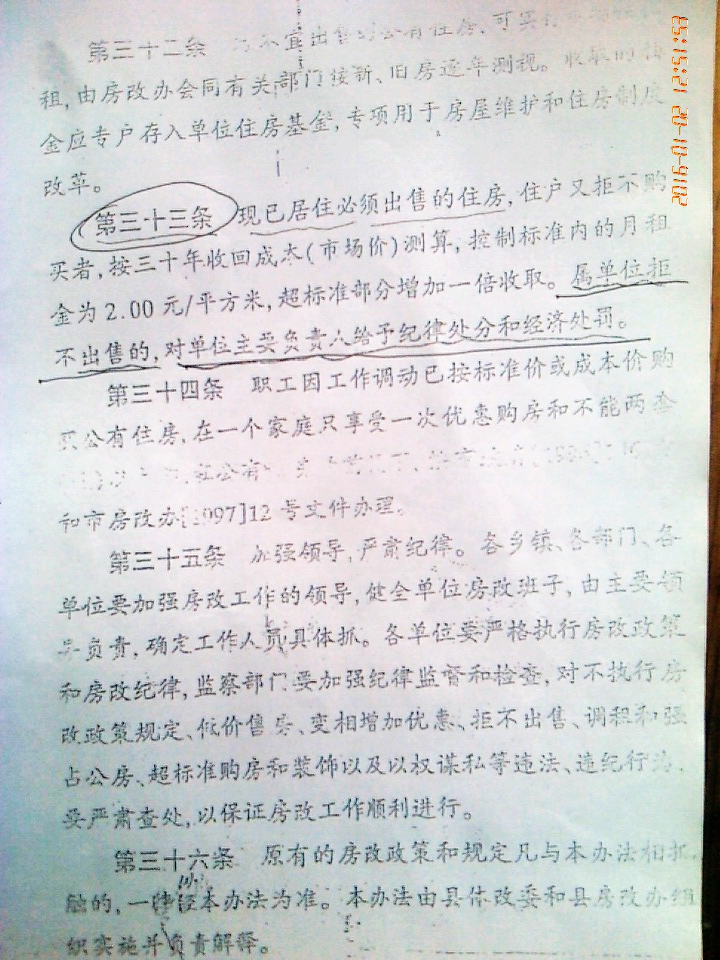 第三十二条 不宜出售的公有住房,可实行
租,由房改办会同有关部门按新、旧房逐年测视。收取的
金应专户存入单位住房基金,专项用于房屋维护和住房制度
改革。
第三十三条 现已居住必须出售的住房,住户又拒不购
买者,按三十年收回成本(市场价)测算,控制标准内的月租
金为2.00元/平方米,超标准部分增加一倍收取。属单位拒
不出售的,对单位主要负责人给予纪律处分和经济处罚。
第三十四条 职工因工作调动已按标准价或成本价购
买公有住房,在一个家庭只享受一次优惠购房和不能两套
和市房改办[1997]12号文件办理。
第三十五条 加强领导,严肃纪律。各乡镇、各部门、各
单位要加强房改工作的领导,健全单位房改班子,由主要领
导负责,确定工作人员具体抓。各单位要严格执行房改政策
和房改纪律,监察部门要加强纪律监督和检查,对不执行房
改政策规定、低价售房、变相增加优惠、拒不出售、调租和强
占公房、超标准购房和装饰以及以权谋私等违法、违纪行为,
要严肃查处,以保证房改工作顺利进行。
第三十六条 原有的房改政策和规定凡与本办法相抵
触的,一律以本办法为准。本办法由县体改委和县房改办组
织实施并负责解释。
2016-01-20 15:21:53